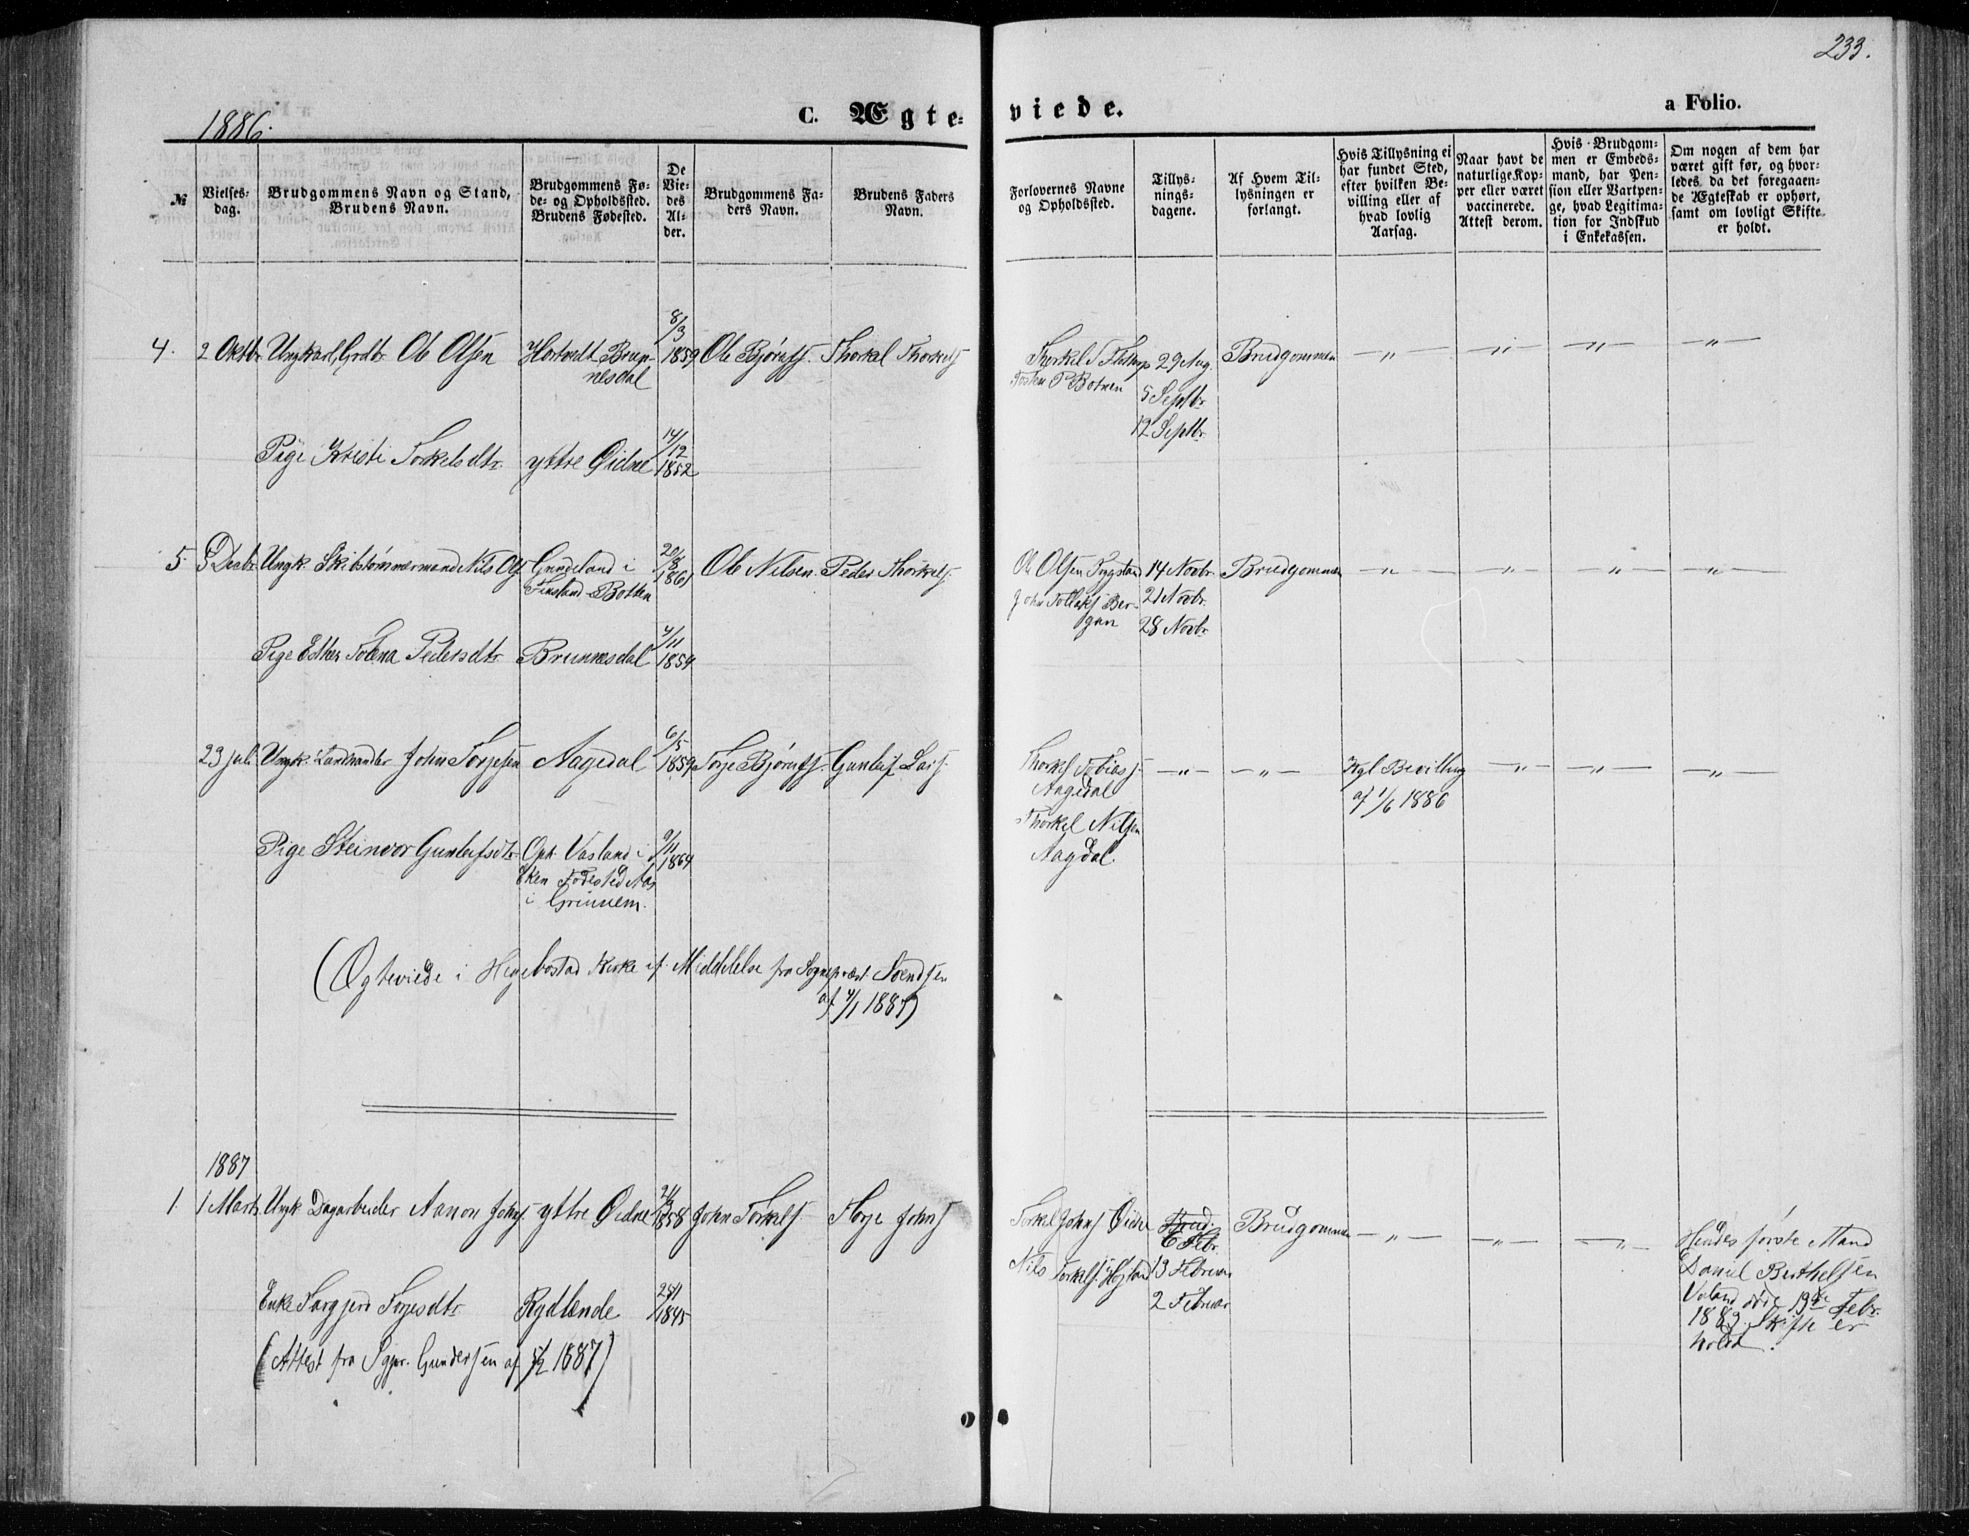 233.
1886.
C. Ægte-
viede.
a Folio.
№
Vielses-
dag.
Brudgommens Navn og Stand,
Brudens Navn.
Brudgommens Fø-
de- og Opholdssted.
Brudens Fødested.
De
Vie-
des
Al-
der.
Brudgommens Fa-
ders Navn.
Brudens Faders
Navn.
Forlovernes Navne
og Opholdssted.
Tillys-
nings-
dagene.
Af Hvem Til-
lysningen er
forlangt.
Hvis Tillysning ei
har fundet Sted,
efter hvilken Be-
villing eller af
hvad lovlig
Aarsag.
Naar havt de
naturlige Kop-
per eller været
vaccinerede.
Attest derom.
Hvis Brudgom-
men er Embeds-
mand, har Pen-
sion eller Vartpen-
ge, hvad Legitima-
tion for Indskud
i Enkekassen.
Om nogen af dem har
været gift før, og hvor-
ledes da det foregaaen-
de Ægteskab er ophørt,
samt om lovligt Skifte
er holdt.
4. 2 Oktbr Ungkarl, Grdbr Ole Olsen
Hortvedt Brun-
nesdal
8/3
1859
Ole Bjørnss.
Thorkel Thorkels
Thorkel T
Tosten P Botnen
29 Aug.
5 Septbr.
12 Septbr.
Brudgommen
— „ —
— „ —
— „ —
— „ —
Pige Kristi Torkelsdtr.
yttre Øidne
14/12
1852
5. Decbr Ungk. Skibstømmermand Nils Ols
Gundeland i
Finsland - Botten
20/8
1861
Ole Nilsen.
Peder Thorkels.
Ole Olsen
John Tollaks Ber-
gan
14 Novbr.
21 Novbr.
28 Novbr.
Brudgommen
— „ —
— „ —
— „ —
— „ —
Pige Esther Tolena Pedersdtr.
Brunnesdal
4/11
1854
23 juli Ungk. Landhandler John Torjesen
Aagedal
6/5
1859
Torje Bjørnss.
Gunleif Lars.
Thorkel Tobias.
Aagedal
Thorkel Nilsen
Aagdal.
— „ —
— „ —
Kgl Bevilling
af 1/6 1886
— „ —
— „ —
— „ —
Pige Steinvor Gunleifsdtr.
Oph. Vasland i
Eken Fødested Aas
i Grinnem.
9/11
1864
(Ægteviede i Hegebostad Kirke if. Middelelse fra Sognepræst Svendsen
af 4/1 1887)
1887
1 1 Marts Ungk. Dagarbeider Aanon Johns.
yttre Øidne
1858
John Torkels.
Torje Johns
Torkel Johns Øidne
Nils Torkels.
6 Febr.
13 Februar
2 Februar
Brudgommen
— „ —
— „ —
— „ —
Hendes første Mand
Daniel Berthelsen
Voland døde 19de Febr.
1883. Skifte er
holdt.
Enke Torgjerd Torjesdtr.
Rydlende
1845
(Attest fra Sgpr. Gundersen af 5/2 1887)